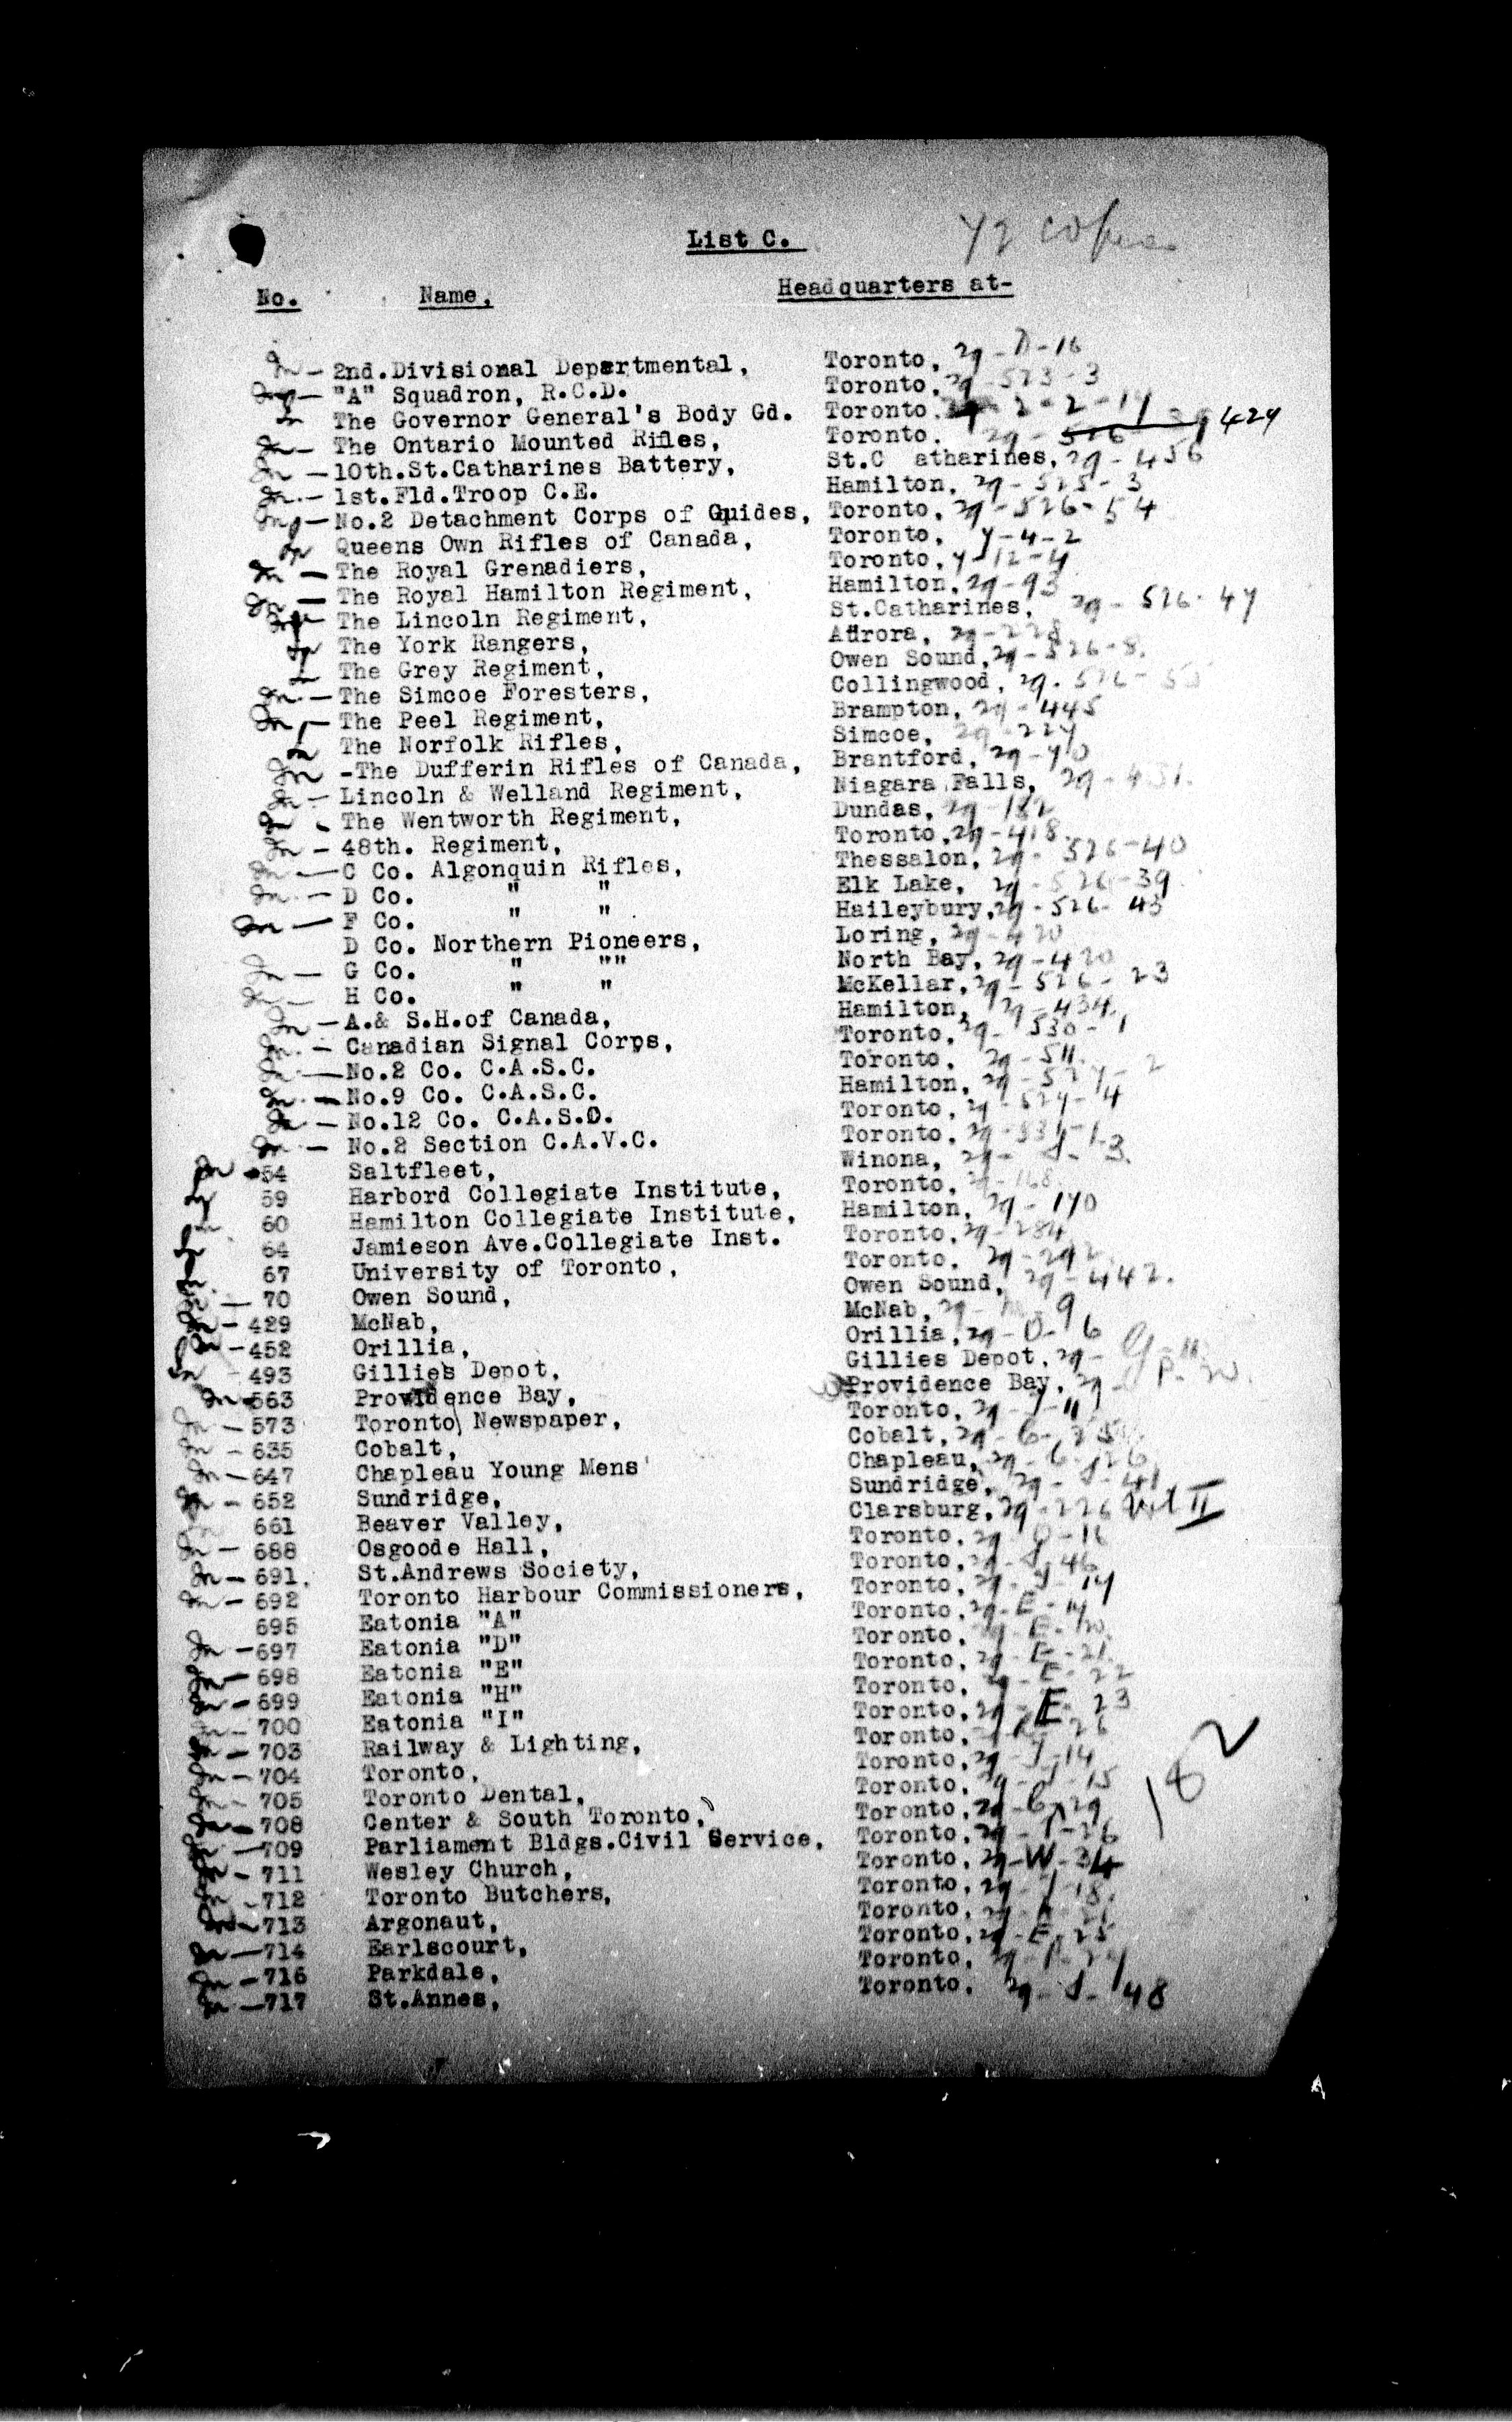 List C.
No. Name, Headquarters at-
2nd.Divisional Departmental, Toronto, 29-D-16
"A" Squadron, R.C.D. Toronto, 29-523-3
The Governor General's Body Gd. Toronto.
The Ontario Mounted Rifles, Toronto. 29- 424
10th.St.Catharines Battery, St.C atharines, 29-456
1st.Fld.Troop C.E. Hamilton, 29-525-3
No.2 Detachment Corps of Guides, Toronto, 29-526-54
Queens Own Rifles of Canada, Toronto, 7-4-2
The Royal Grenadiers, Toronto, 7-12-4
The Royal Hamilton Regiment, Hamilton, 29-93
The Lincoln Regiment, St.Catharines, 29-526-47
The York Rangers, Aurora, 29-228
The Grey Regiment, Owen Sound, 29-526-8.
The Simcoe Foresters, Collingwood, 29-526-
The Peel Regiment, Brampton, 29-445
The Norfolk Rifles, Simcoe, 29-227
-The Dufferin Rifles of Canada, Brantford, 29-70
Lincoln & Welland Regiment, Niagara Falls, 29-451.
The Wentworth Regiment, Dundas, 29-182
48th. Regiment, Toronto, 29-418.
C Co. Algonquin Rifles, Thessalon, 29-526-40
D Co. " " Elk Lake, 29-526-39
F Co. " " Haileybury, 29-526-43
D Co. Northern Pioneers, Loring, 29-420
G Co. " "" North Bay, 29-420
H Co. " " McKellar, 29-526-23
A.& S.H.of Canada, Hamilton, 29-434.
Canadian Signal Corps, Toronto, 29-530-1
No.2 Co. C.A.S.C. Toronto, 29-511.
No.9 Co. C.A.S.C. Hamilton, 29-527-2
No.12 Co. C.A.S.C. Toronto, 29-527-4
No.2 Section C.A.V.C. Toronto, 29-531-1
54 Saltfleet, Winona, 29-S-3.
59 Harbord Collegiate Institute, Toronto, 29-168.
60 Hamilton Collegiate Institute, Hamilton, 29-170
64 Jamieson Ave.Collegiate Inst. Toronto, 29-284
67 University of Toronto, Toronto, 29-292
70 Owen Sound, Owen Sound, 29-442.
429 McNab, McNab, 29-M-9
452 Orillia, Orillia, 29-O-6
493 Gillies Depot, Gillies Depot, 29-G-11
563 Providence Bay, Providence Bay, 29-P-20.
573 Toronto Newspaper, Toronto, 29-T-11
635 Cobalt, Cobalt, 29-C-
647 Chapleau Young Mens' Chapleau, 29-C-
652 Sundridge, Sundridge, 29-S-41
661 Beaver Valley, Clarsburg, 29-226 Vol II
688 Osgoode Hall, Toronto, 29-O-16
691. St.Andrews Society, Toronto, 29-S-46
692 Toronto Harbour Commissioners, Toronto, 29-T-14
695 Eatonia "A" Toronto, 29-E-
697 Eatonia "D" Toronto, 29-E-20.
698 Eatonia "E" Toronto, 29-E-21.
699 Eatonia "H" Toronto, 29-E-22
700 Eatonia "I" Toronto, 29-E-23
703 Railway & Lighting, Toronto, 29-R-26
704 Toronto, Toronto, 29-T-14
705 Toronto Dental, Toronto, 29-T-15
708 Center & South Toronto, Toronto, 29-C-29
709 Parliament Bldgs.Civil Service, Toronto, 29-P-26
711 Wesley Church, Toronto, 29-W-34
712 Toronto Butchers, Toronto, 29-T-18.
713 Argonaut, Toronto, 29-A-
714 Earlscourt, Toronto, 29-E-25
716 Parkdale, Toronto, 29-P-27
717 St.Annes, Toronto, 29-S-48
182